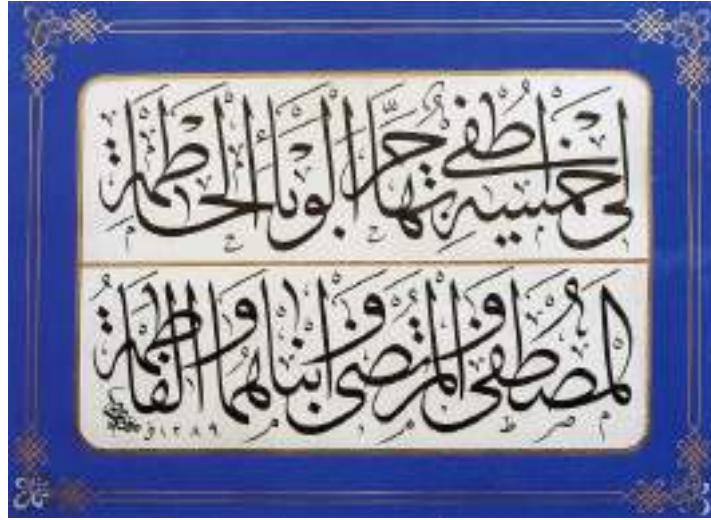 لِي خَمْسَةٌ أُطْفِي بِهَا حَرَّ الْوَبَاءِ الْحَاطِمَة
الْمُصْطَفَى وَالْمُرْتَضَى وَابْنَاهُمَا وَالْفَاطِمَة
١٢٨٩